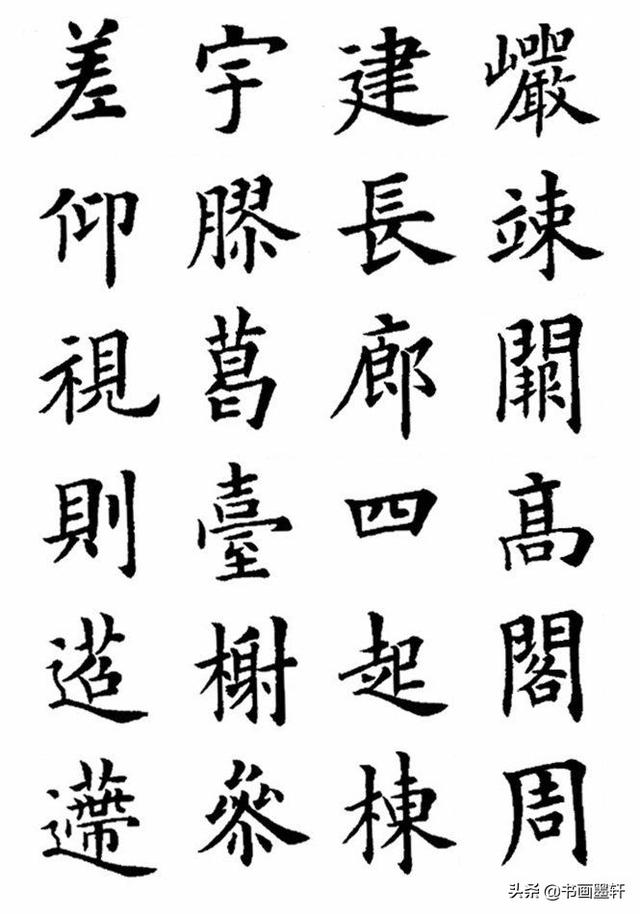 巖竦闕高閣周
建長廊四起棟
宇膠葛臺榭參
差仰視則迢遰
头条 @书画墨轩